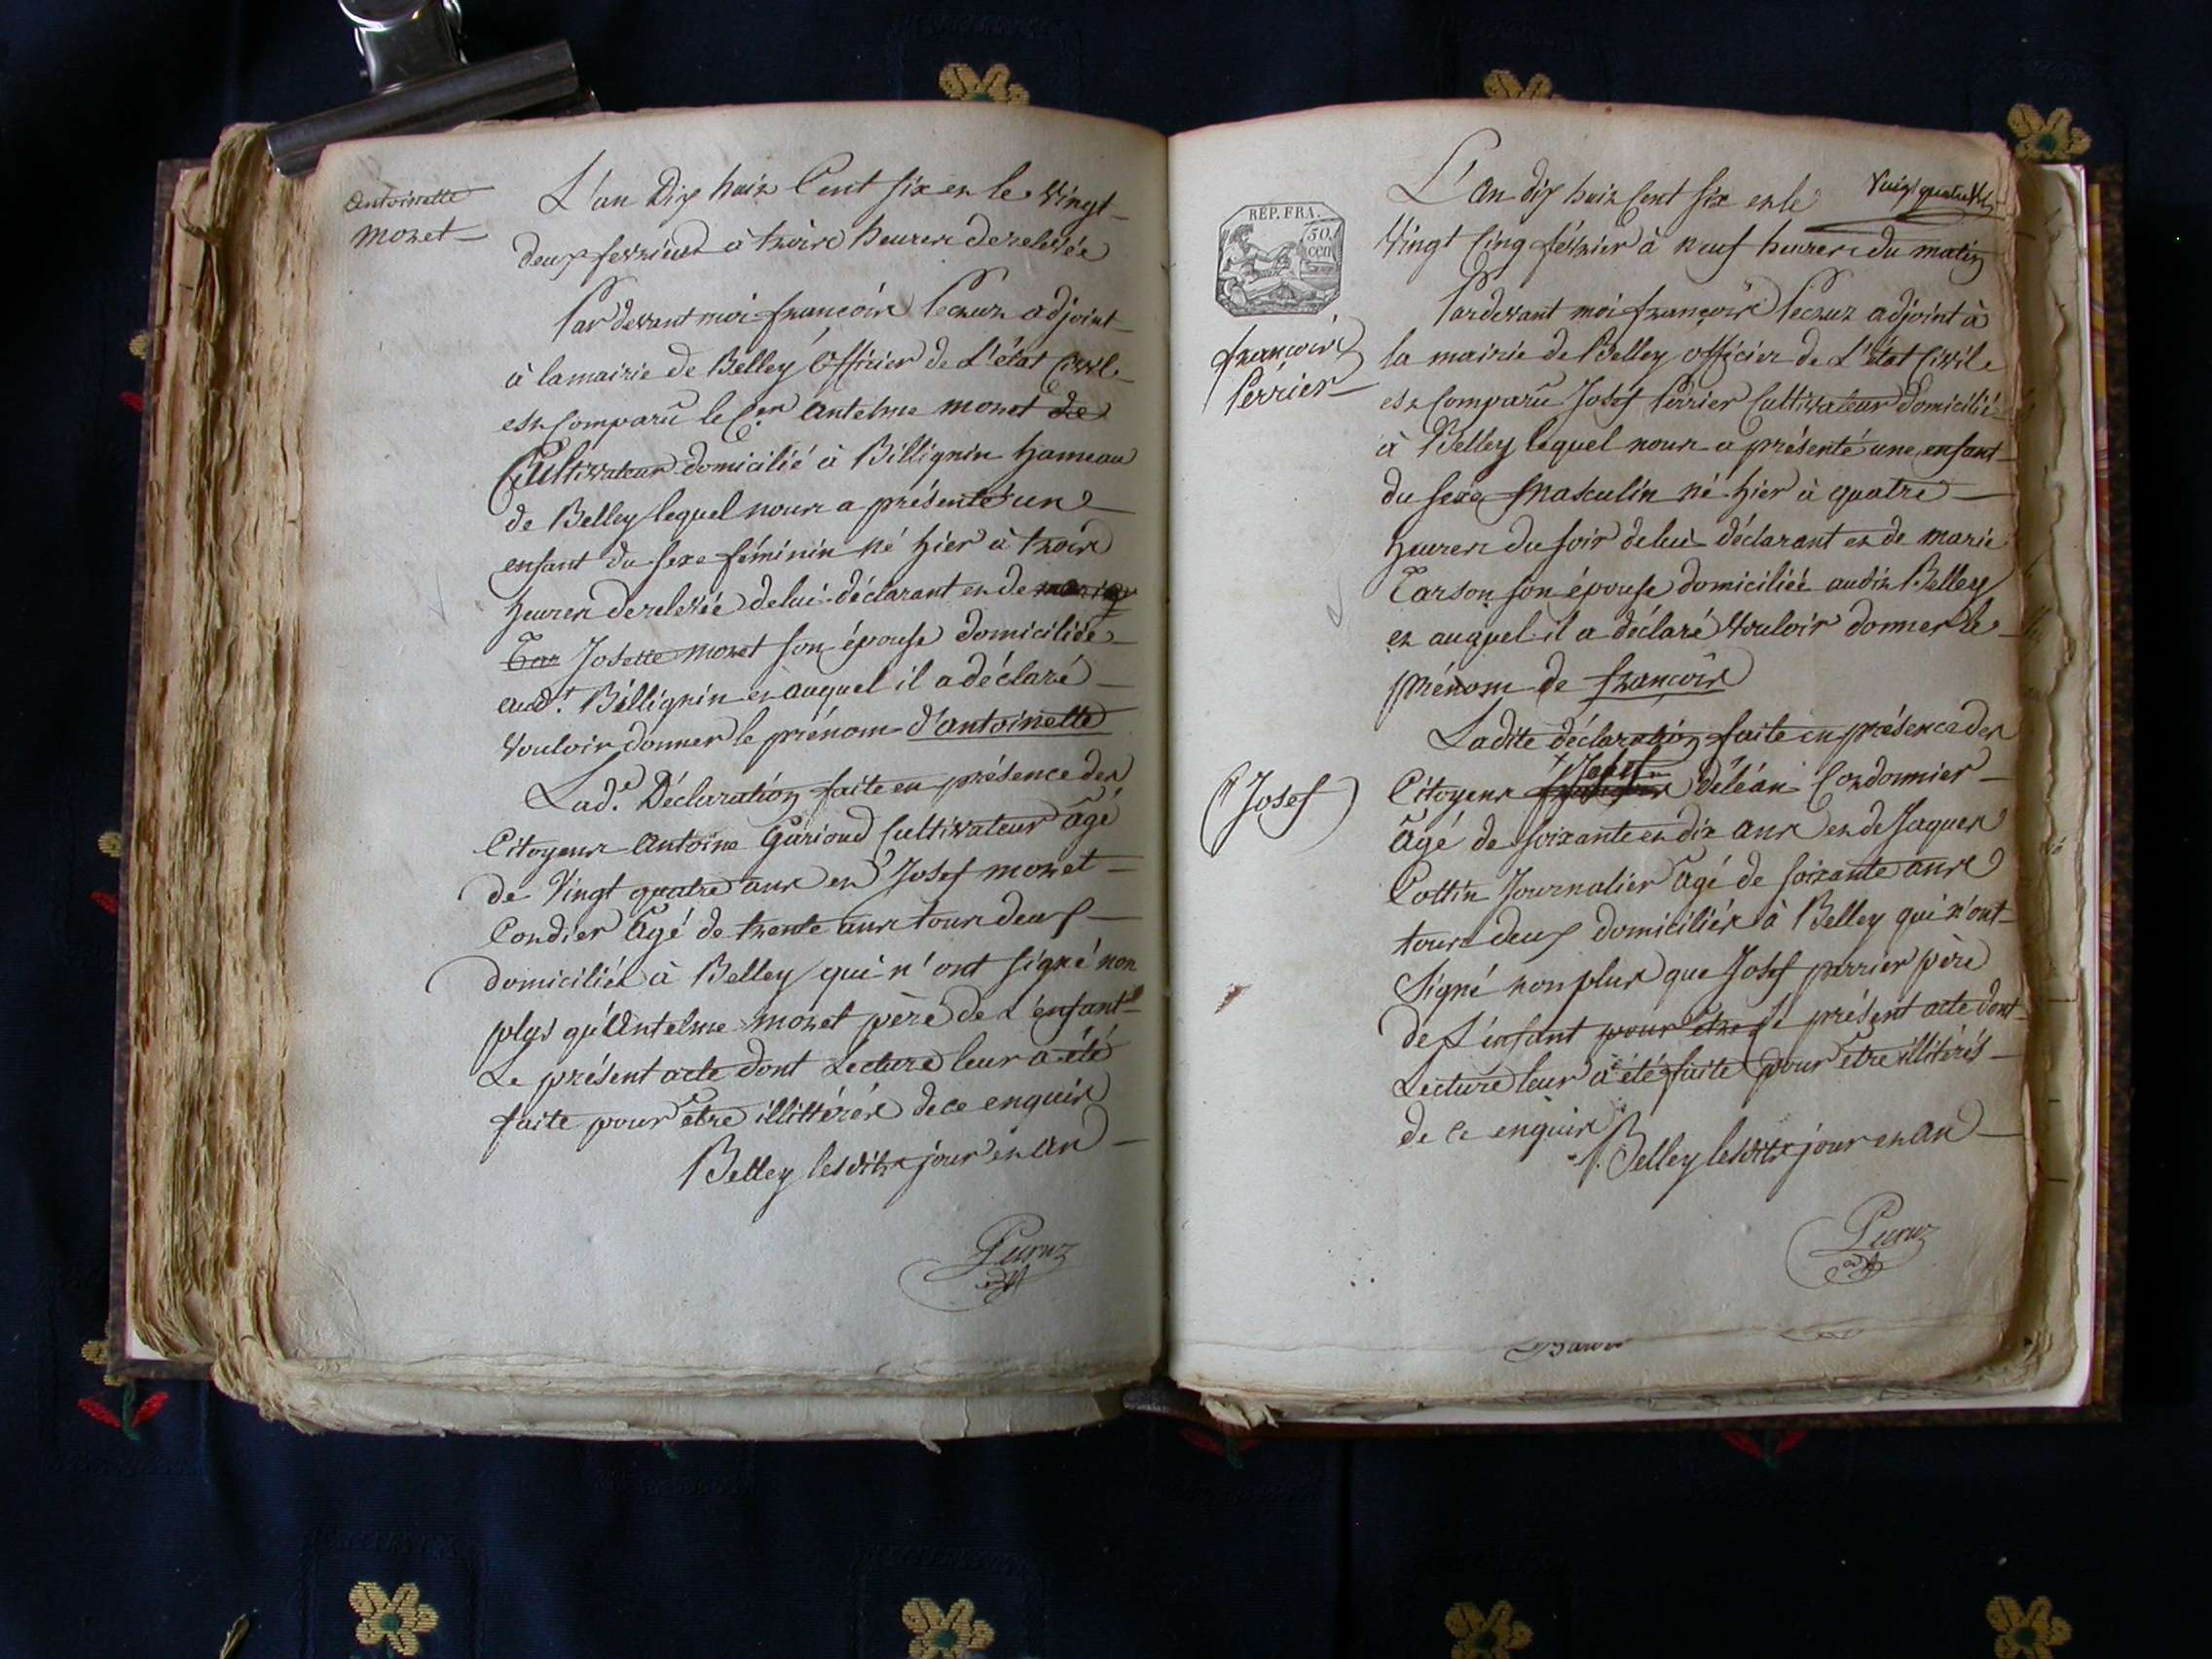 Antoinette
monet
L'an Dix huit Cent six et le Vingt
deux fevrier à trois heures de relevée
Par devant moi françois Pecruz adjoint
à la mairie de Belley Officier de L'état Civil
est Comparû le C.en Antelme monet de
Cultivateur domicilié à Billignin hameau
de Belley lequel nous a présenté un
enfant du sexe féminin né hier à trois
heures de relevée de lui déclarant et de marie
Tar Josette monet son épouse domiciliée
aud.t Billignin et auquel il a déclaré
Vouloir donner le prénom d'antoinette
Lad.e Déclaration faite en présence des
Citoyens Antoine Gurioud Cultivateur âgé
de Vingt quatre ans et Josef monet
Cordier âgé de trente ans tous deux
domiciliés à Belley qui n'ont signé non
plus qu'Antelme monet père de L'enfant
Le présent acte dont Lecture leur a été
faite pour être illittérés de ce enquis
Belley lesdits jour et an
Pecruz
adj.t
Vingt quatre
REP. FRA.
50.
cen
L'An dix huit Cent six et le
Vingt Cinq février à neuf heures du matin
Pardevant moi françois Pecruz adjoint à
françois
Perrier
la mairie de Belley officier de L'état Civil
est Comparû Josef Perrier Cultivateur domicilié
à Belley lequel nous a présenté une enfant
du sexe Masculin né hier à quatre
heures du soir de lui déclarant et de marie
Tarson son épouse domiciliée audit Belley
et auquel il a déclaré Vouloir donner le
prénom de françois
Ladite déclaration faite en présence des
+ Josef
Citoyens déléan Cordonnier
+ Josef
âgé de soixante et dix ans et de Jaques
Cottin Journalier âgé de soixante ans
tous deux domiciliés à Belley qui n'ont
signé non plus que Josef perrier père
de L'enfant pour être Le présent acte dont
Lecture leur a été faite pour être illitérés
de ce enquis
Belley lesdits jour et an
Pecruz
adj.t